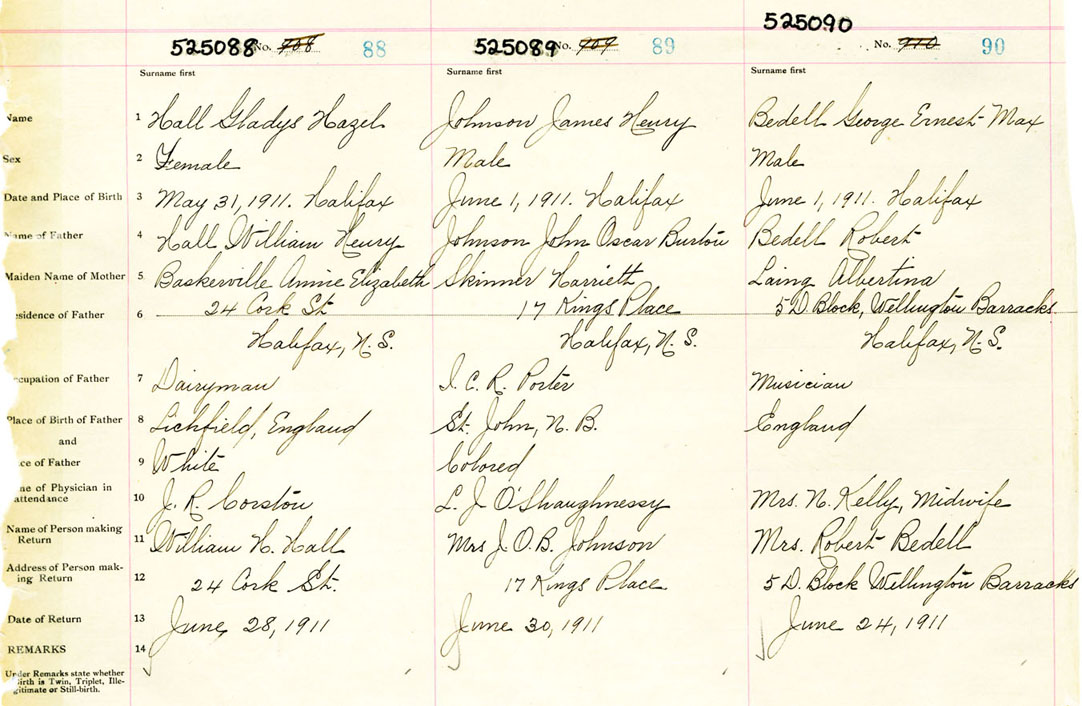 525090
525088 No. 908 88 525089 No. 909 89 No. 910 90
Surname first Surname first Surname first
Name 1 Hall Gladys Hazel Johnson James Henry Bedell George Ernest Max
Sex 2 Female Male Male
Date and Place of Birth 3 May 31, 1911. Halifax June 1, 1911. Halifax June 1, 1911. Halifax
Name of Father 4 Hall William Henry Johnson John Oscar Burton Bedell Robert
Maiden Name of Mother 5 Baskerville Annie Elizabeth Skinner Harriett Laing Albertina
esidence of Father 6 24 Cork St 17 Kings Place 5 D. Block, Wellington Barracks
Halifax, N.S. Halifax, N.S. Halifax, N.S.
ccupation of Father 7 Dairyman I. C. R. Porter Musician
Place of Birth of Father 8 Lichfield, England St. John, N.B. England
and
ce of Father 9 White Colored
me of Physician in
attendance 10 J. R. Corston L. J. O'Shaughnessy Mrs. N. Kelly, Midwife
Name of Person making
Return 11 William H. Hall Mrs J. O. B. Johnson Mrs. Robert Bedell
Address of Person mak-
ing Return 12 24 Cork St. 17 Kings Place 5 D. Block Wellington Barracks
Date of Return 13 June 28, 1911 June 30, 1911 June 24, 1911
REMARKS 14
Under Remarks state whether
Birth is Twin, Triplet, Ille-
gitimate or Still-birth.